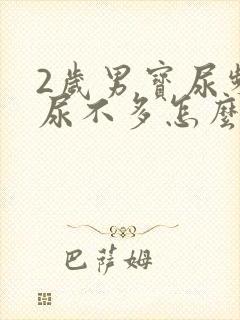 2歲男寶尿頻
尿不多怎麼
巴薩姆